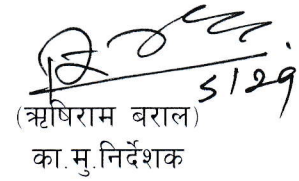 ५।२९
(ऋषिराम बराल)
का.मु.निर्देशक